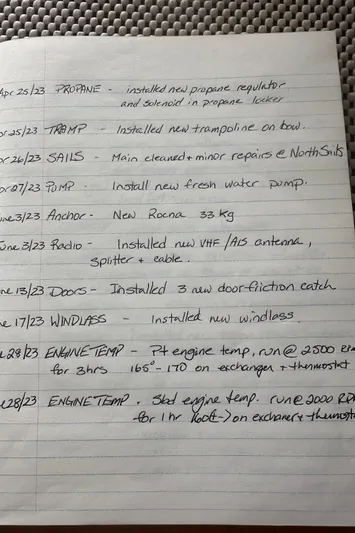 Apr 25/23 PROPANE - installed new propane regulator
and solenoid in propane locker
pr 25/23 TRAMP - Installed new trampoline on bow.
pr 26/23 SAILS - Main cleaned + minor repairs @ North Sails
pr 27/23 PUMP - Install new fresh water pump.
une 3/23 Anchor - New Rocna 33 Kg
une 3/23 Radio - Installed new VHF/AIS antenna,
splitter + cable.
ne 13/23 Doors - Installed 3 new door-friction catch
e 17/23 WINDLASS - Installed new windlass
28/23 ENGINE TEMP - Pt engine temp, run @ 2500 RPM
for 3hrs 165° - 170 on exchanger + thermostat
28/23 ENGINE TEMP. Stbd engine temp. run @ 2000 RPM
for 1 hr on exchanger + thermosta